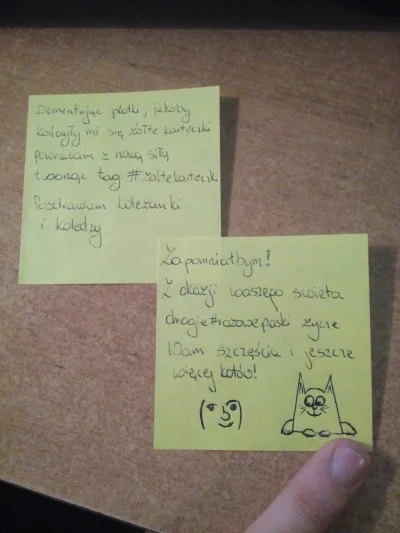 Dementując plotki, jakoby
kończyły mi się żółte karteczki
powracam z nową siłą
tworząc tag #zoltekarteczki
Pozdrawiam koleżanki
i koledzy
Zapomniałbym!
Z okazji waszego święta
drogie #rozowepaski życzę
Wam szczęścia i jeszcze
więcej kotów!
( ͡° ͜ʖ ͡°)